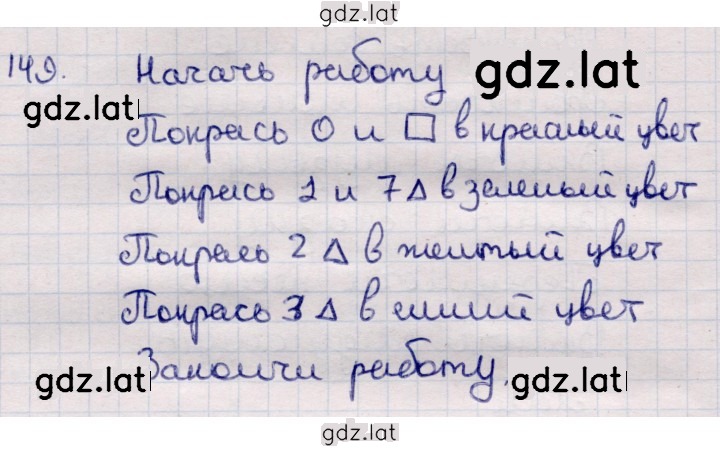 gdz.lat
149. Начать работу gdz.lat
gdz.lat
Покрась О и □ в красный цвет
Покрась 1 и 7 Δ в зеленый цвет
Покрась 2 Δ в желтый цвет
Покрась 3 Δ в синий цвет
Закончи работу.
gdz.lat gdz.lat
gdz.lat